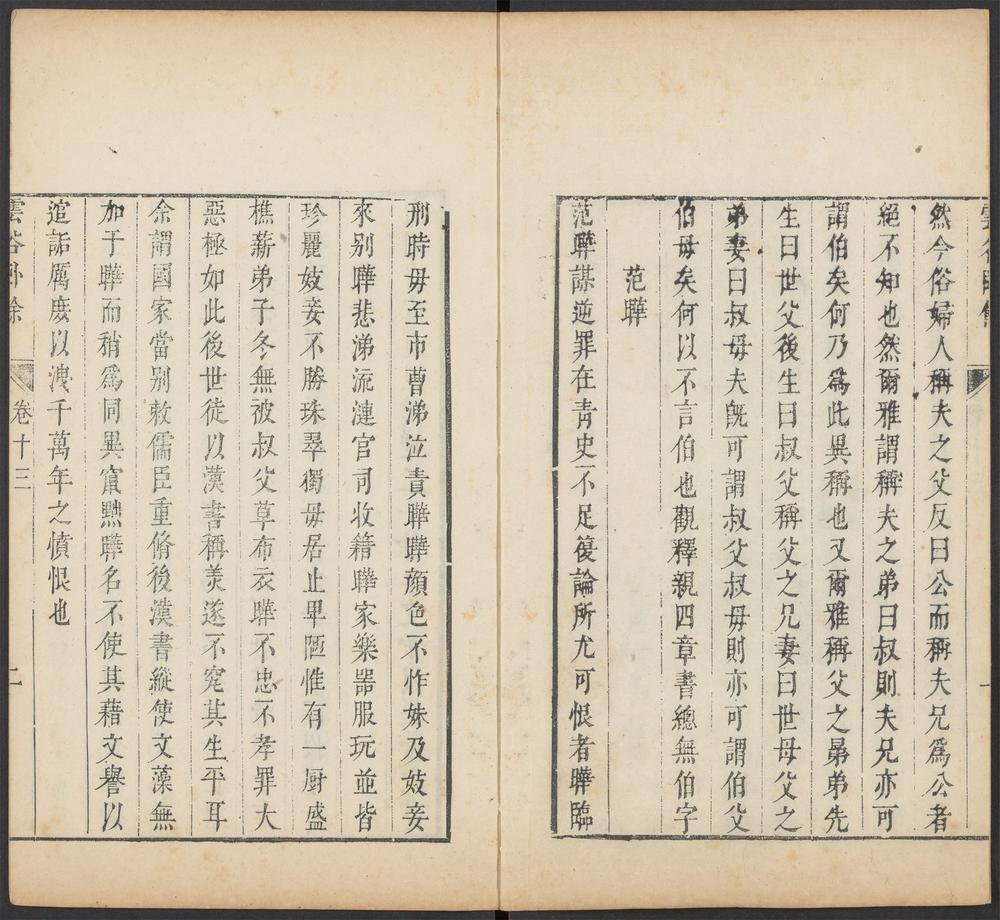 然今俗婦人稱夫之父反曰公而稱夫兄爲公者
絕不知也然爾雅謂稱夫之弟曰叔則夫兄亦可
謂伯矣何乃爲此異稱也又爾雅稱父之晜弟先
生曰世父後生曰叔父稱父之兄妻曰世母父之
弟妻曰叔母夫旣可謂叔父叔母則亦可謂伯父
伯母矣何以不言伯也觀釋親四章書總無伯字
范曄
范曄謀逆罪在青史不足復論所尤可恨者曄臨
刑時母至市曹涕泣責曄曄顔色不怍妹及妓妾
來别曄悲涕流漣官司收籍曄家樂器服玩並皆
珍麗妓妾不勝珠翠獨母居止卑陋惟有一厨盛
樵薪弟子冬無被叔父草布衣曄不忠不孝罪大
惡極如此後世徒以漢書稱羙遂不究其生平耳
余謂國家當别敕儒臣重脩後漢書縱使文藻無
加于曄而稍爲同異竄黜曄名不使其藉文譽以
逭誥厲庶以洩千萬年之憤恨也
雲谷臥餘
卷十三
二